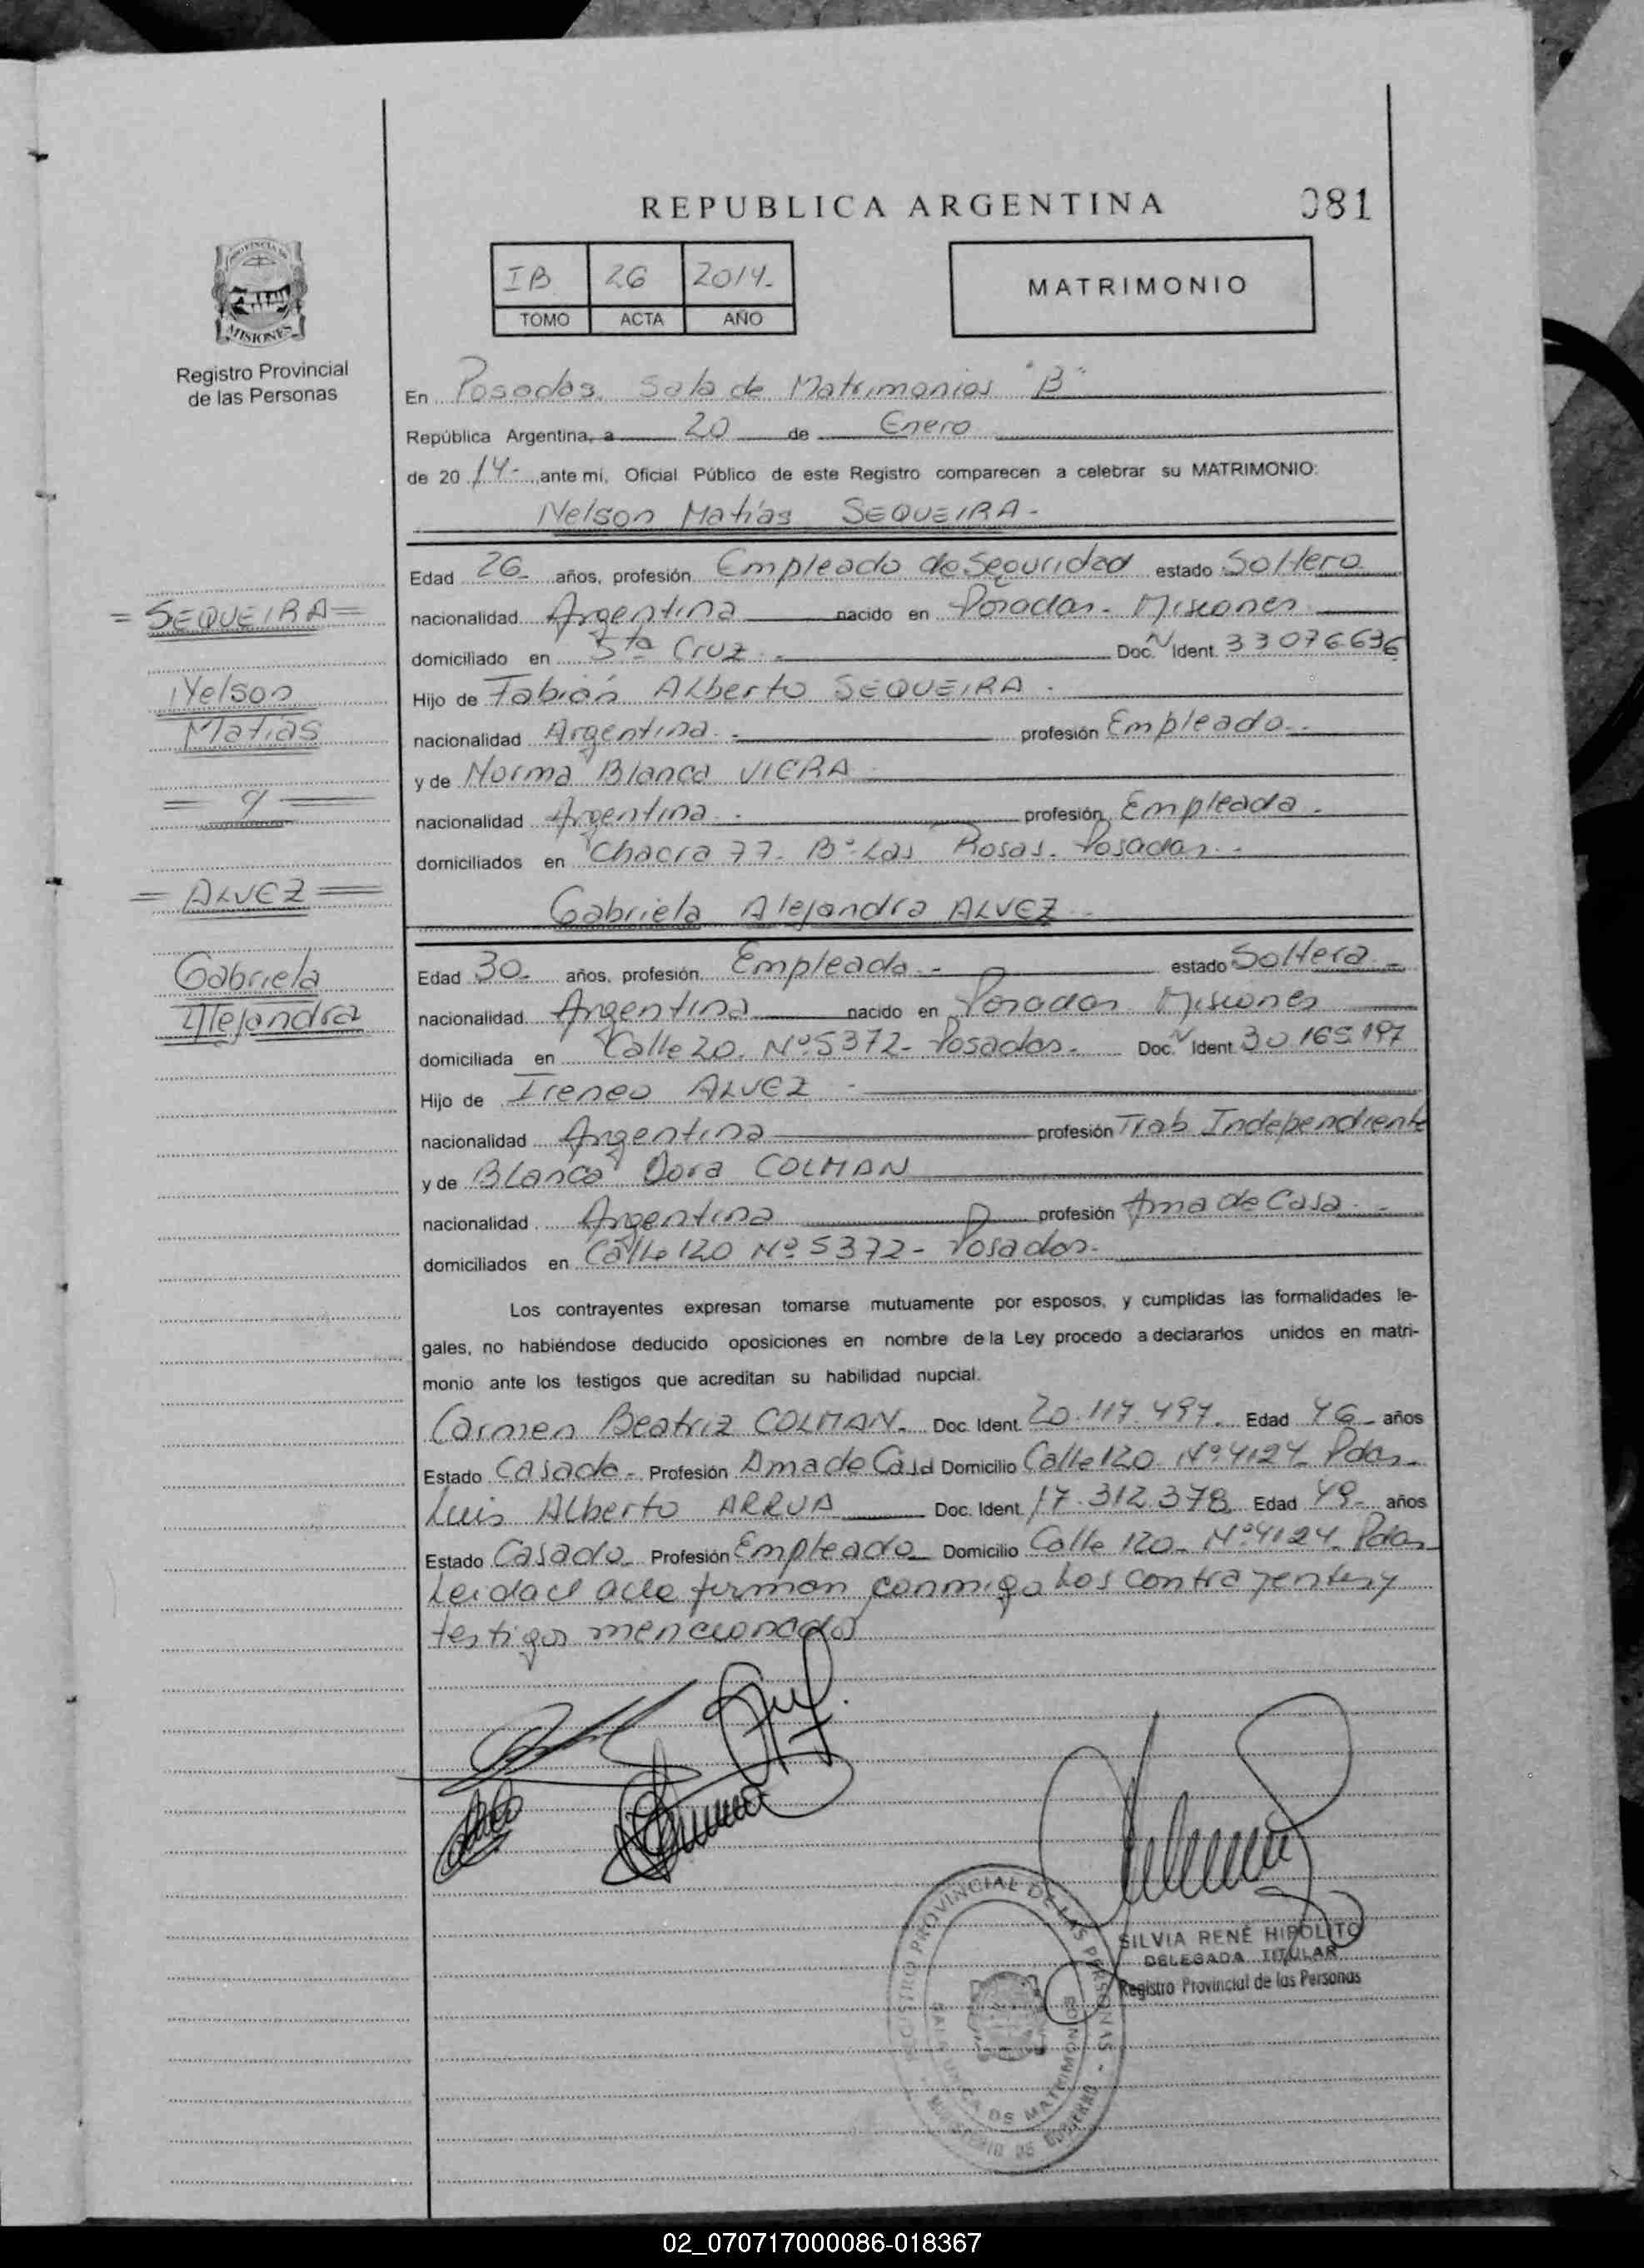 REPUBLICA ARGENTINA
081
PROVINCIA DE
MISIONES
Registro Provincial
de las Personas
IB 26 2014.-
TOMO ACTA AÑO
MATRIMONIO
En Posadas. Sala de Matrimonios "B"
República Argentina, a 20 de Enero
de 20 14.- ,ante mí, Oficial Público de este Registro comparecen a celebrar su MATRIMONIO:
Nelson Matías SEQUEIRA -
Edad 26- años, profesión Empleado de Seguridad estado Soltero
= SEQUEIRA =
nacionalidad Argentina nacido en Posadas - Misiones
domiciliado en Sta Cruz - Doc. N Ident. 33076636
Nelson
Hijo de Fabián Alberto SEQUEIRA -
Matías
nacionalidad Argentina.- profesión Empleado.-
y de Norma Blanca VIERA
= y =
nacionalidad Argentina.- profesión Empleada.-
domiciliados en Chacra 77- Bº Las Rosas. Posadas.-
= ALVEZ =
Gabriela Alejandra ALVEZ -
Gabriela
Edad 30- años, profesión Empleada.- estado Soltera.-
Alejandra
nacionalidad Argentina nacido en Posadas Misiones
domiciliada en Calle 20. Nº 5372- Posadas.- Doc. N Ident. 30165197
Hijo de Ireneo ALVEZ -
nacionalidad Argentina profesión Trab Independiente
y de Blanca Dora COLMAN
nacionalidad Argentina profesión Ama de Casa.-
domiciliados en Calle 120 Nº 5372- Posadas-
Los contrayentes expresan tomarse mutuamente por esposos, y cumplidas las formalidades le-
gales, no habiéndose deducido oposiciones en nombre de la Ley procedo a declararlos unidos en matri-
monio ante los testigos que acreditan su habilidad nupcial.
Carmen Beatriz COLMAN- Doc. Ident. 20.117.497. Edad 46- años
Estado Casada- Profesión Ama de Casa Domicilio Calle 120. Nº 4124- Pdas.-
Luis Alberto ARRUA Doc. Ident. 17.312.378 Edad 49- años
Estado Casado- Profesión Empleado- Domicilio Calle 120- Nº 4124- Pdas
Leida el acta firman conmigo Los contrayentes y
testigos mencionados
SILVIA RENÉ HIPOLITO
DELEGADA TITULAR
Registro Provincial de las Personas
REGISTRO PROVINCIAL DE LAS PERSONAS -
DE MATRIMONIOS
MINISTERIO DE GOBIERNO
02_070717000086-018367